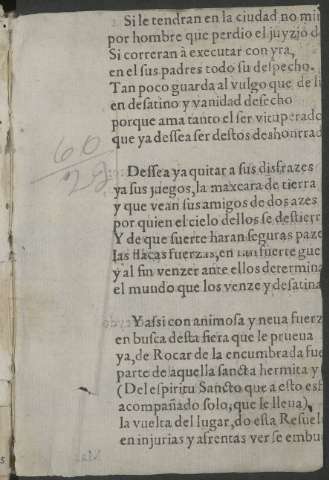 Si le tendran en la ciudad no mi
por hombre que perdio el juyzio d
Si correran à executar con yra,
en el sus padres todo su despecho.
Tan poco guarda al vulgo que de
en desatino y vanidad desecho
porque ama tanto el ser vituperado
que ya dessea ser destos deshonrrad
60
22
Dessea ya quitar a sus disfrazes
ya sus juegos, la maxcara de tierra
y que vean sus amigos de dos azes
por quien el cielo dellos se destierr
Y de que suerte haran seguras paze
las flacas fuerzas, en tan fuerte gue
y al fin venzer ante ellos determina
el mundo que los venze y desatina
Y assi con animosa y neua fuerz
en busca desta fiera que le prueua
ya, de Rocar de la encumbrada fue
parte de aquella sancta hermita y
(Del espiritu Sancto que a esto esf
acompañado solo, que le lleua)
la vuelta del lugar, do esta Resuel
en injurias y afrentas ver se embu